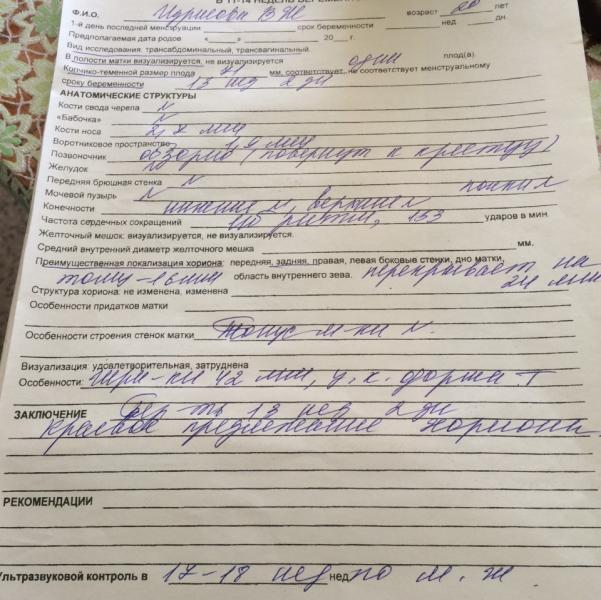 В 11-14 НЕДЕЛЬ БЕРЕМЕН
Ф.И.О. В Ж возраст лет
1-й день последней менструации срок беременности нед. дн.
Предполагаемая дата родов « » 20 г.
Вид исследования: трансабдоминальный, трансвагинальный.
В полости матки визуализируется, не визуализируется один плод(а).
Копчико-теменной размер плода 71 мм, соответствует, не соответствует менструальному
сроку беременности 13 нед 2 дн
АНАТОМИЧЕСКИЕ СТРУКТУРЫ
Кости свода черепа N
«Бабочка» N
Кости носа мм
Воротниковое пространство мм
Позвоночник обзорно (повернут к крестцу)
Желудок
Передняя брюшная стенка N
Мочевой пузырь N
Конечности нижние N, верхния
Частота сердечных сокращений ритм, 153 ударов в мин.
Желточный мешок: визуализируется, не визуализируется.
Средний внутренний диаметр желточного мешка мм.
Преимущественная локализация хориона: передняя, задняя, правая, левая боковые стенки, дно матки,
толщ-16мм область внутреннего зева. перекрывает на
24 мм
Структура хориона: не изменена, изменена
Особенности придатков матки
Особенности строения стенок матки Тонус м-ки N.
Визуализация: удовлетворительная, затруднена
Особенности: 42 мм, форма Т
ЗАКЛЮЧЕНИЕ Бер-ть 13 нед 2 дн
краевое предлежание хориона.
РЕКОМЕНДАЦИИ
Ультразвуковой контроль в 17-18 нед нед. по м. ж.